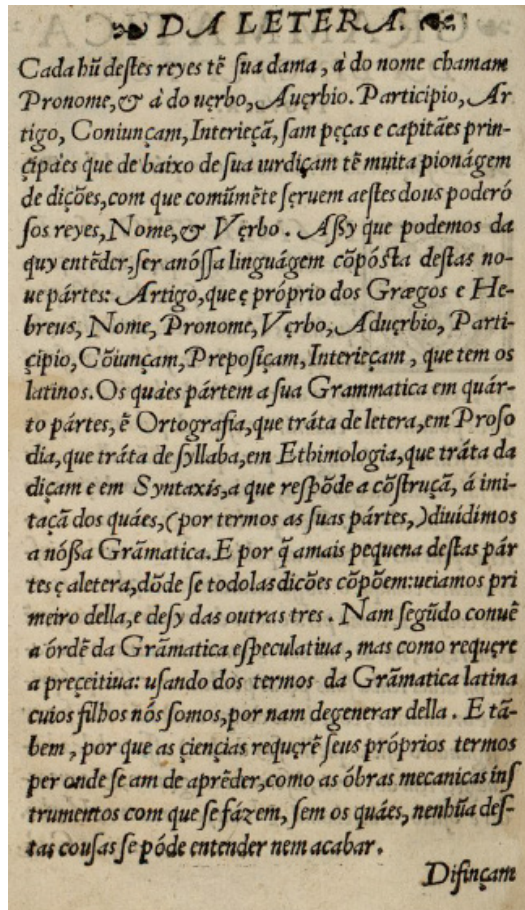 DA LETERA.
Cada hũ deſtes reyes tẽ ſua dama, à do nome chamam
Pronome, & à do uęrbo, Auęrbio. Participio, Ar
tigo, Coniunçam, Interieçã, ſam pęças e capitães prin-
çipàes que de baixo de ſua iurdiçam tẽ muita pionágem
de dições, com que comũmẽte ſęruem aeſtes dous poderó
ſos reyes, Nome, & Vęrbo. Aſsy que podemos da
quy entẽder, ſer anóſſa linguágem cõpóſta deſtas no-
ue pártes: Artigo, que ę próprio dos Grægos e He-
breus, Nome, Pronome, Vęrbo, Aduęrbio, Parti-
çipio, Cõiunçam, Prepoſiçam, Interieçam, que tem os
latinos. Os quàes pártem a ſua Grammatica em quár-
to pártes, ẽ Ortografia, que tráta de letera, em Proſo
dia, que tráta de ſyllaba, em Ethimologia, que tráta da
diçam e em Syntaxis, a que reſpõde a cõſtruçã, á imi-
taçã dos quáes, (por termos as ſuas pártes,) diuidimos
a nóſſa Grãmatica. E por q̃ amais pequena deſtas pár
tes ę aletera, dõde ſe todolas dicões cõpõem: ueiamos pri
meiro della, e deſy das outras tres. Nam ſegũdo conuẽ
a órdẽ da Grãmatica eſpeculatiua, mas como requęre
a preçeitiua: uſando dos termos da Grãmatica latina
cuios filhos nós ſomos, por nam degenerar della. E tã-
bem, por que as çiençias requęrẽ ſeus próprios termos
per onde ſe am de aprẽder, como as óbras mecanicas inſ
trumentos com que ſe fázem, ſem os quáes, nenhũa deſ-
tas couſas ſe póde entender nem acabar.
Difinçam